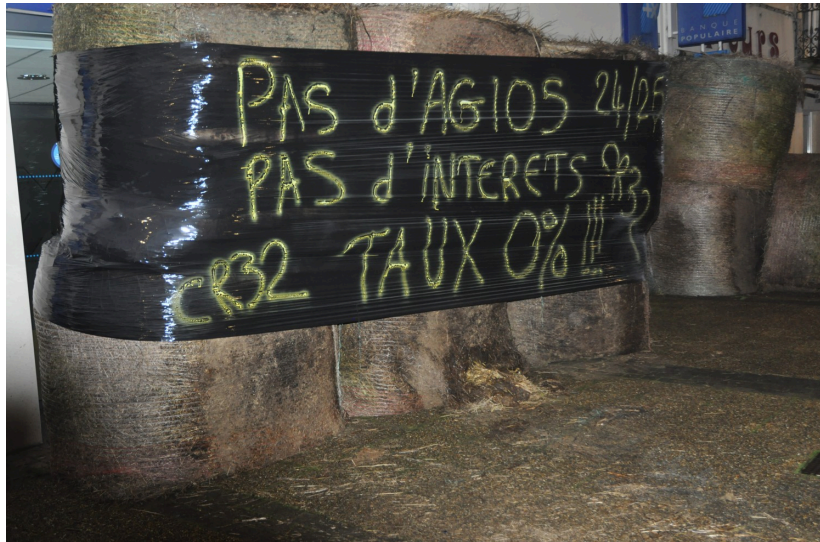 BANQUE
POPULAIRE
PAS d'AGIOS 24/25
PAS d'INTERETS
CR32 TAUX 0% !!!